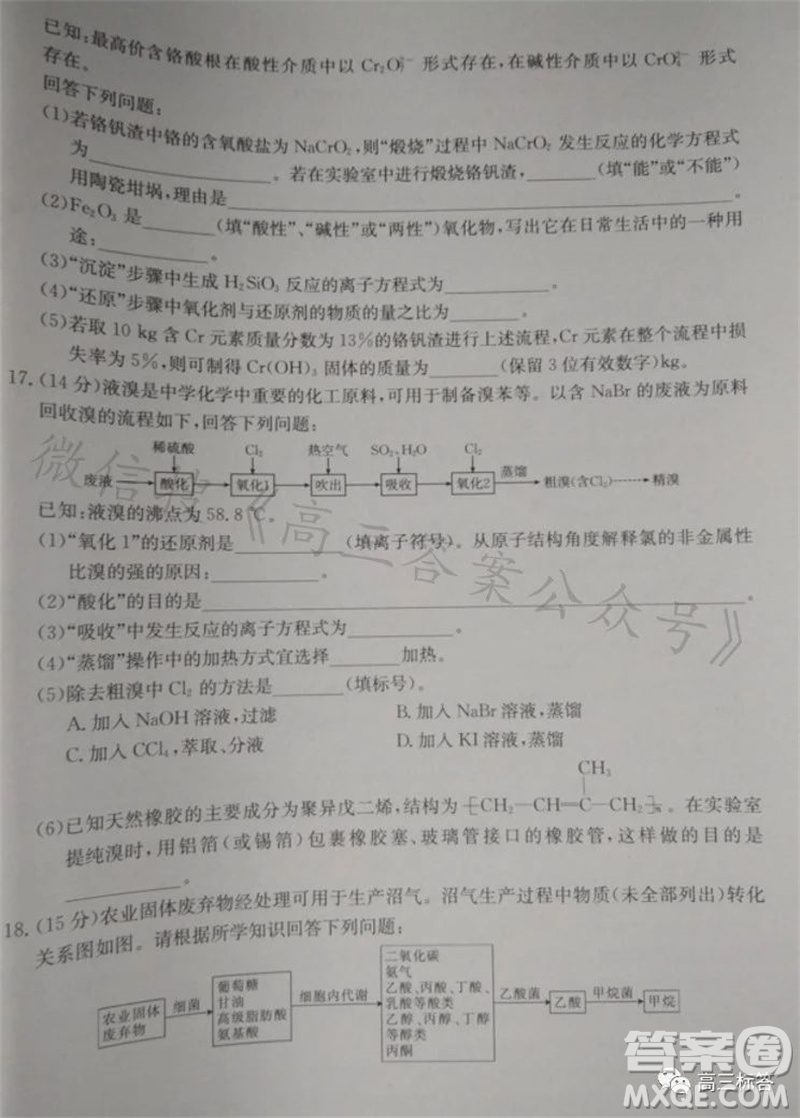 已知:最高价含铬酸根在酸性介质中以 Cr₂O₇²⁻ 形式存在,在碱性介质中以 CrO₄²⁻ 形式
存在。
回答下列问题:
(1)若铬钒渣中铬的含氧酸盐为 NaCrO₂,则“煅烧”过程中 NaCrO₂ 发生反应的化学方程式
为________。若在实验室中进行煅烧铬钒渣,________(填“能”或“不能”)
用陶瓷坩埚,理由是________。
(2)Fe₂O₃ 是________(填“酸性”、“碱性”或“两性”)氧化物,写出它在日常生活中的一种用
途:________。
(3)“沉淀”步骤中生成 H₂SiO₃ 反应的离子方程式为________。
(4)“还原”步骤中氧化剂与还原剂的物质的量之比为________。
(5)若取 10 kg 含 Cr 元素质量分数为 13%的铬钒渣进行上述流程,Cr 元素在整个流程中损
失率为 5%,则可制得 Cr(OH)₃ 固体的质量为________(保留 3 位有效数字)kg。
17.(14 分)液溴是中学化学中重要的化工原料,可用于制备溴苯等。以含 NaBr 的废液为原料
回收溴的流程如下,回答下列问题:
稀硫酸 Cl₂ 热空气 SO₂、H₂O Cl₂
废液 酸化 氧化1 吹出 吸收 氧化2 蒸馏 粗溴(含Cl₂) 精溴
已知:液溴的沸点为 58.8 ℃。
(1)“氧化 1”的还原剂是________(填离子符号)。从原子结构角度解释氯的非金属性
比溴的强的原因:________。
(2)“酸化”的目的是________.
(3)“吸收”中发生反应的离子方程式为________。
(4)“蒸馏”操作中的加热方式宜选择________加热。
(5)除去粗溴中 Cl₂ 的方法是________(填标号)。
A. 加入 NaOH 溶液,过滤 B. 加入 NaBr 溶液,蒸馏
C. 加入 CCl₄,萃取、分液 D. 加入 KI 溶液,蒸馏
CH₃
(6)已知天然橡胶的主要成分为聚异戊二烯,结构为 ⁅CH₂—CH═C—CH₂⁆ₙ。在实验室
提纯溴时,用铝箔(或锡箔)包裹橡胶塞、玻璃管接口的橡胶管,这样做的目的是
________。
18.(15 分)农业固体废弃物经处理可用于生产沼气。沼气生产过程中物质(未全部列出)转化
关系图如图。请根据所学知识回答下列问题:
农业固体
废弃物
细菌
葡萄糖
甘油
高级脂肪酸
氨基酸
细胞内代谢
二氧化碳
氨气
乙酸、丙酸、丁酸、
乳酸等酸类
乙醇、丙醇、丁醇
等醇类
丙酮
乙酸菌
乙酸
甲烷菌
甲烷
微信搜《高三答案公众号》
高三标答
答案圈
MXQE.COM